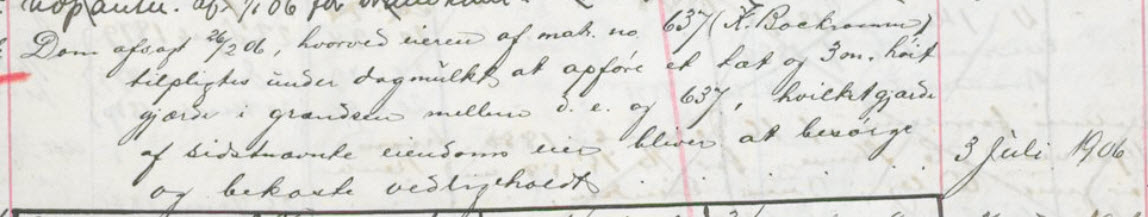 Dom afsagt 26/2 06, hvorved eieren af matr. no 637 (K. Bockmann)
tilpligtes under dagmulkt at opføre et tæt og 3 m. høit
gjærde i grændsen mellem d. e. og 637, hvilket gjærde
af sidstnævnte eiendoms eier bliver at besørge
og bekoste vedligeholdt. 3 Juli 1906